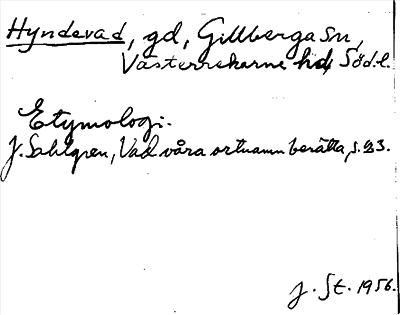 Hyndevad, gd, Gillberga sn,
Västerrekarne hd, Södl.
Etymologi.
J. Sahlgren, Vad våra ortnamn berätta, s. 23.
J. St. 1956.